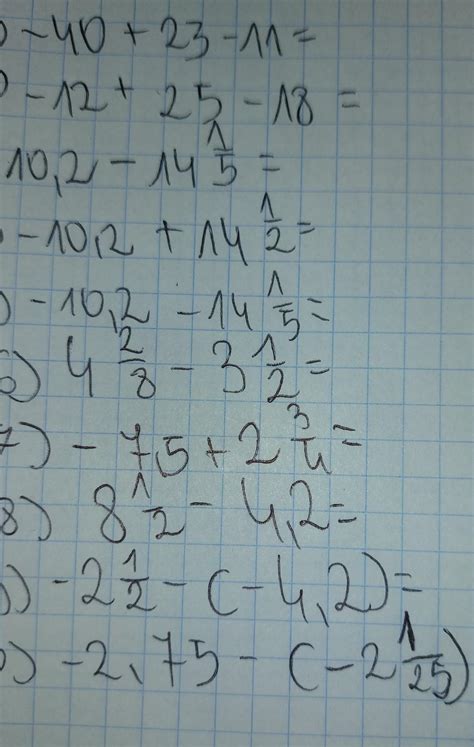 ) -40 + 23 - 11 =
) -12 + 25 - 18 =
10,2 - 14 1/5 =
) -10,2 + 14 1/2 =
) -10,2 - 14 1/5 =
6) 4 2/8 - 3 1/2 =
7) -7,5 + 2 3/4 =
8) 8 1/2 - 4,2 =
) -2 1/2 - (-4,2) =
) -2,75 - (-2 1/25)